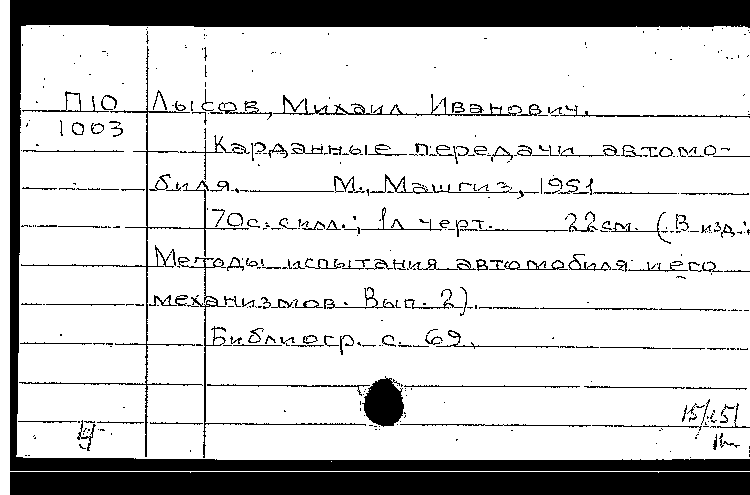 П10 Лысов, Михаил Иванович.
1003
Карданные передачи автомо-
биля. М., Машгиз, 1951
70с. с илл.; 1л черт. 22см. (В изд.:
Методы испытания автомобиля и его
механизмов. Вып. 2).
Библиогр. с. 69.